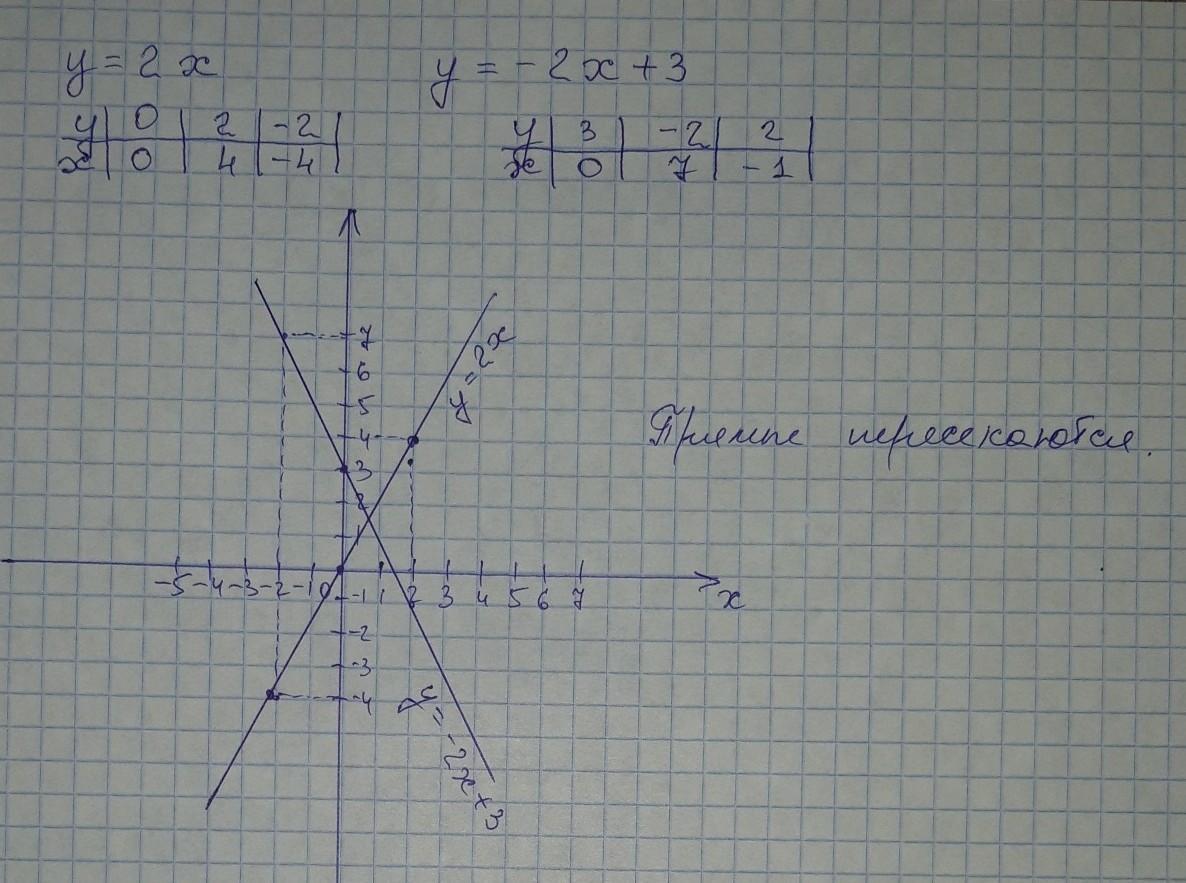 y = 2x
y = -2x + 3
y | 0 | 2 | -2 |
x | 0 | 4 | -4 |
y | 3 | -2 | 2 |
x | 0 | 7 | -1 |
7
6
5
4
3
2
1
y = 2x
Прямые пересекаются.
-5 -4 -3 -2 -1 0 1 2 3 4 5 6 7
x
-1
-2
-3
-4
y = -2x + 3